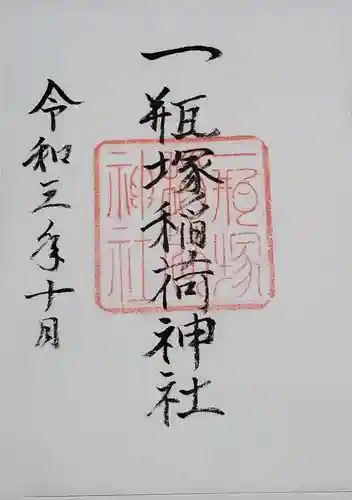 一瓶塚稲荷神社
令和三年十月
一瓶塚
稲荷
神社